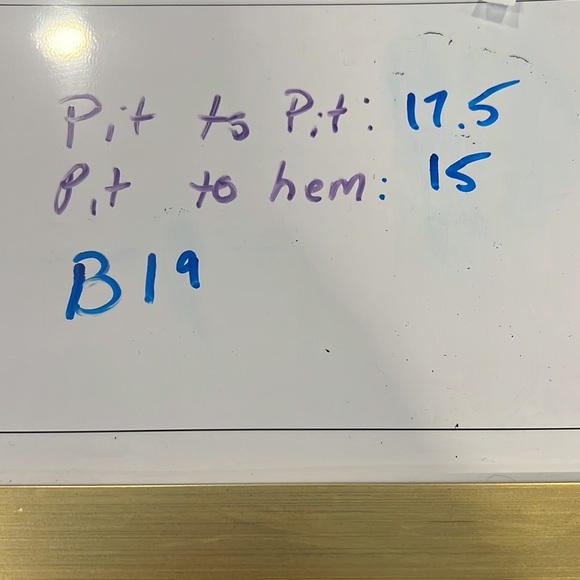 Pit to Pit: 17.5
Pit to hem: 15
B19